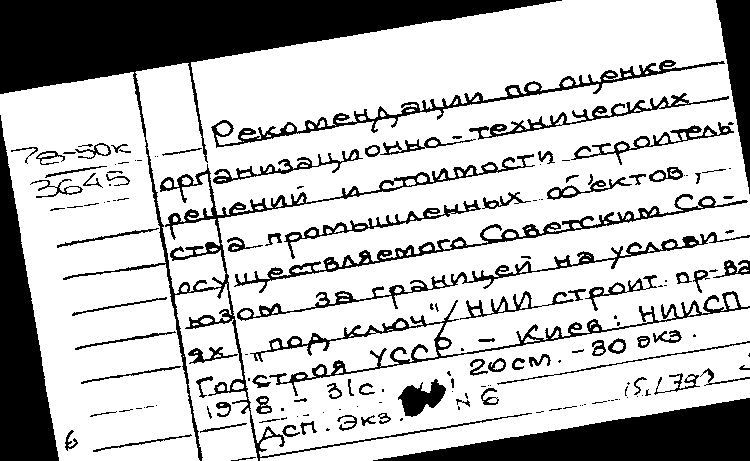 Рекомендации по оценке
78-50к
организационно-технических
3645
решений и стоимости строитель-
ства промышленных объектов,
осуществляемого Советским Со-
юзом за границей на услови-
ях „под ключ"/НИИ строит. пр-ва
Госстроя УССР. - Киев: НИИСП
1978. - 31с. ; 20см. - 30 экз.
Дсп. Экз. N 6
6